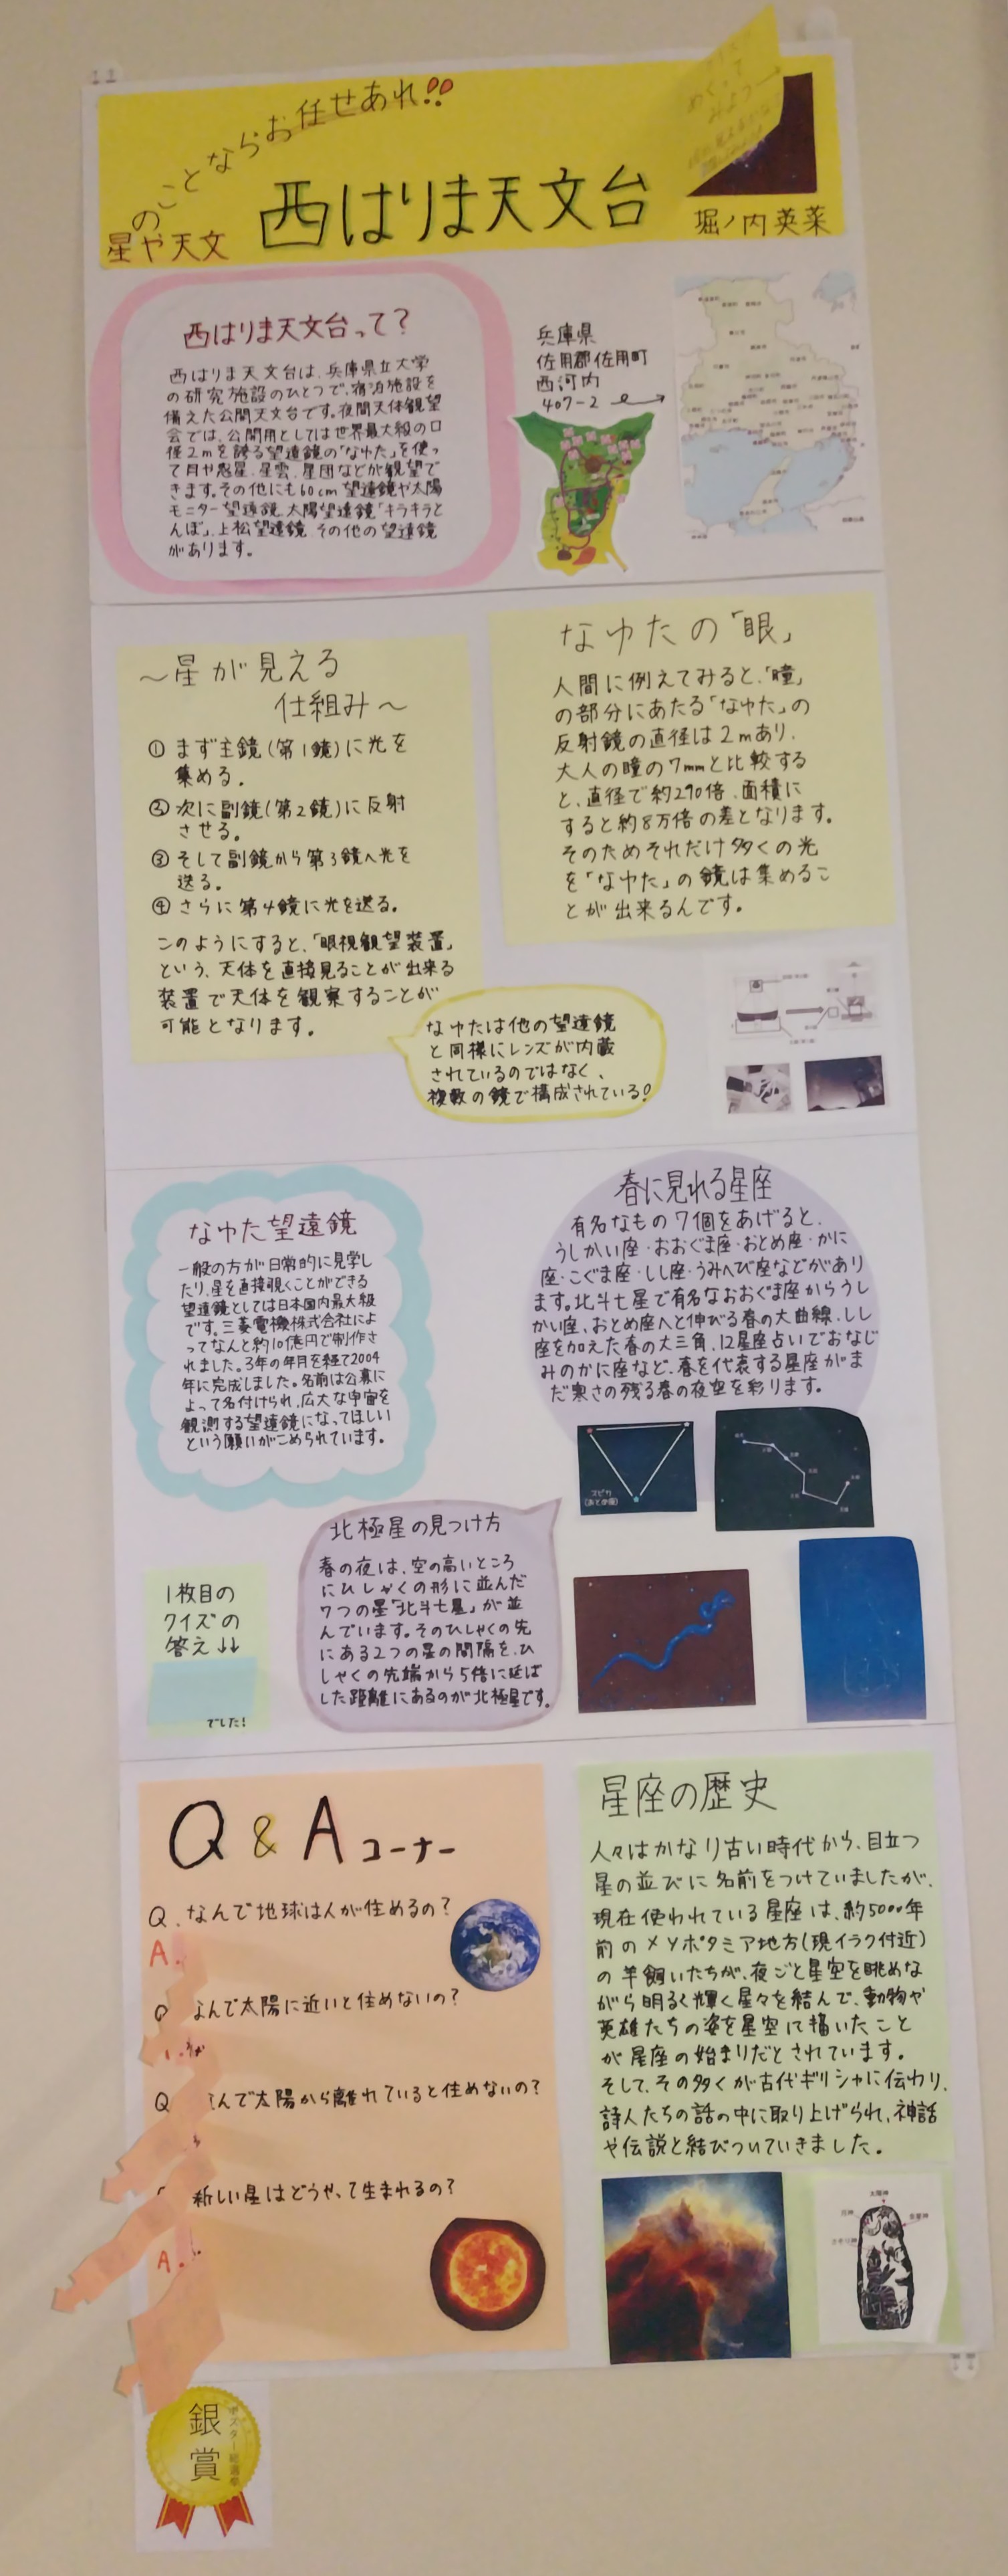 星や天文のことならお任せあれ!!
西はりま天文台
堀ノ内英菜
めくって
みよう
西はりま天文台って？
西はりま天文台は、兵庫県立大学
の研究施設のひとつで、宿泊施設を
備えた公開天文台です。夜間天体観望
会では、公開用としては世界最大級の口
径2mを誇る望遠鏡の「なゆた」を使っ
て月や惑星、星雲、星団などが観望で
きます。その他にも60cm望遠鏡や太陽
モニター望遠鏡、太陽望遠鏡「キラキラと
んぼ」、上松望遠鏡、その他の望遠鏡
があります。
兵庫県
佐用郡佐用町
西河内
407-2
～星が見える
仕組み～
① まず主鏡(第1鏡)に光を
集める。
② 次に副鏡(第2鏡)に反射
させる。
③ そして副鏡から第3鏡へ光を
送る。
④ さらに第4鏡に光を送る。
このようにすると、「眼視観望装置」
という、天体を直接見ることが出来る
装置で天体を観察することが
可能となります。
なゆたの「眼」
人間に例えてみると、「瞳」
の部分にあたる「なゆた」の
反射鏡の直径は2mあり、
大人の瞳の7mmと比較する
と、直径で約290倍、面積に
すると約8万倍の差となります。
そのためそれだけ多くの光
を「なゆた」の鏡は集めるこ
とが出来るんです。
なゆたは他の望遠鏡
と同様にレンズが内蔵
されているのではなく、
複数の鏡で構成されている!
なゆた望遠鏡
一般の方が日常的に見学し
たり、星を直接覗くことができる
望遠鏡としては日本国内最大級
です。三菱電機株式会社によ
ってなんと約10億円で制作さ
れました。3年の年月を経て2004
年に完成しました。名前は公募に
よって名付けられ、広大な宇宙を
観測する望遠鏡になってほしい
という願いがこめられています。
春に見れる星座
有名なもの7個をあげると、
うしかい座・おおぐま座・おとめ座・かに
座・こぐま座・しし座・うみへび座などがあり
ます。北斗七星で有名なおおぐま座からうし
かい座、おとめ座へと伸びる春の大曲線、しし
座を加えた春の大三角、12星座占いでおなじ
みのかに座など、春を代表する星座がま
だ寒さの残る春の夜空を彩ります。
スピカ
(おとめ座)
北極星の見つけ方
春の夜は、空の高いところ
にひしゃくの形に並んだ
7つの星「北斗七星」が並
んでいます。そのひしゃくの先
にある2つの星の間隔を、ひ
しゃくの先端から5倍に延ば
した距離にあるのが北極星です。
1枚目の
クイズの
答え↓↓
でした!
Q & A コーナー
Q. なんで地球は人が住めるの？
A.
Q なんで太陽に近いと住めないの？
Q なんで太陽から離れていると住めないの？
新しい星はどうやって生まれるの？
A.
星座の歴史
人々はかなり古い時代から、目立つ
星の並びに名前をつけていましたが、
現在使われている星座は、約5000年
前のメソポタミア地方(現イラク付近)
の羊飼いたちが、夜ごと星空を眺めな
がら明るく輝く星々を結んで、動物や
英雄たちの姿を星空に描いたこと
が星座の始まりだとされています。
そして、その多くが古代ギリシャに伝わり、
詩人たちの話の中に取り上げられ、神話
や伝説と結びついていきました。
太陽神
ポスター総選挙
銀賞